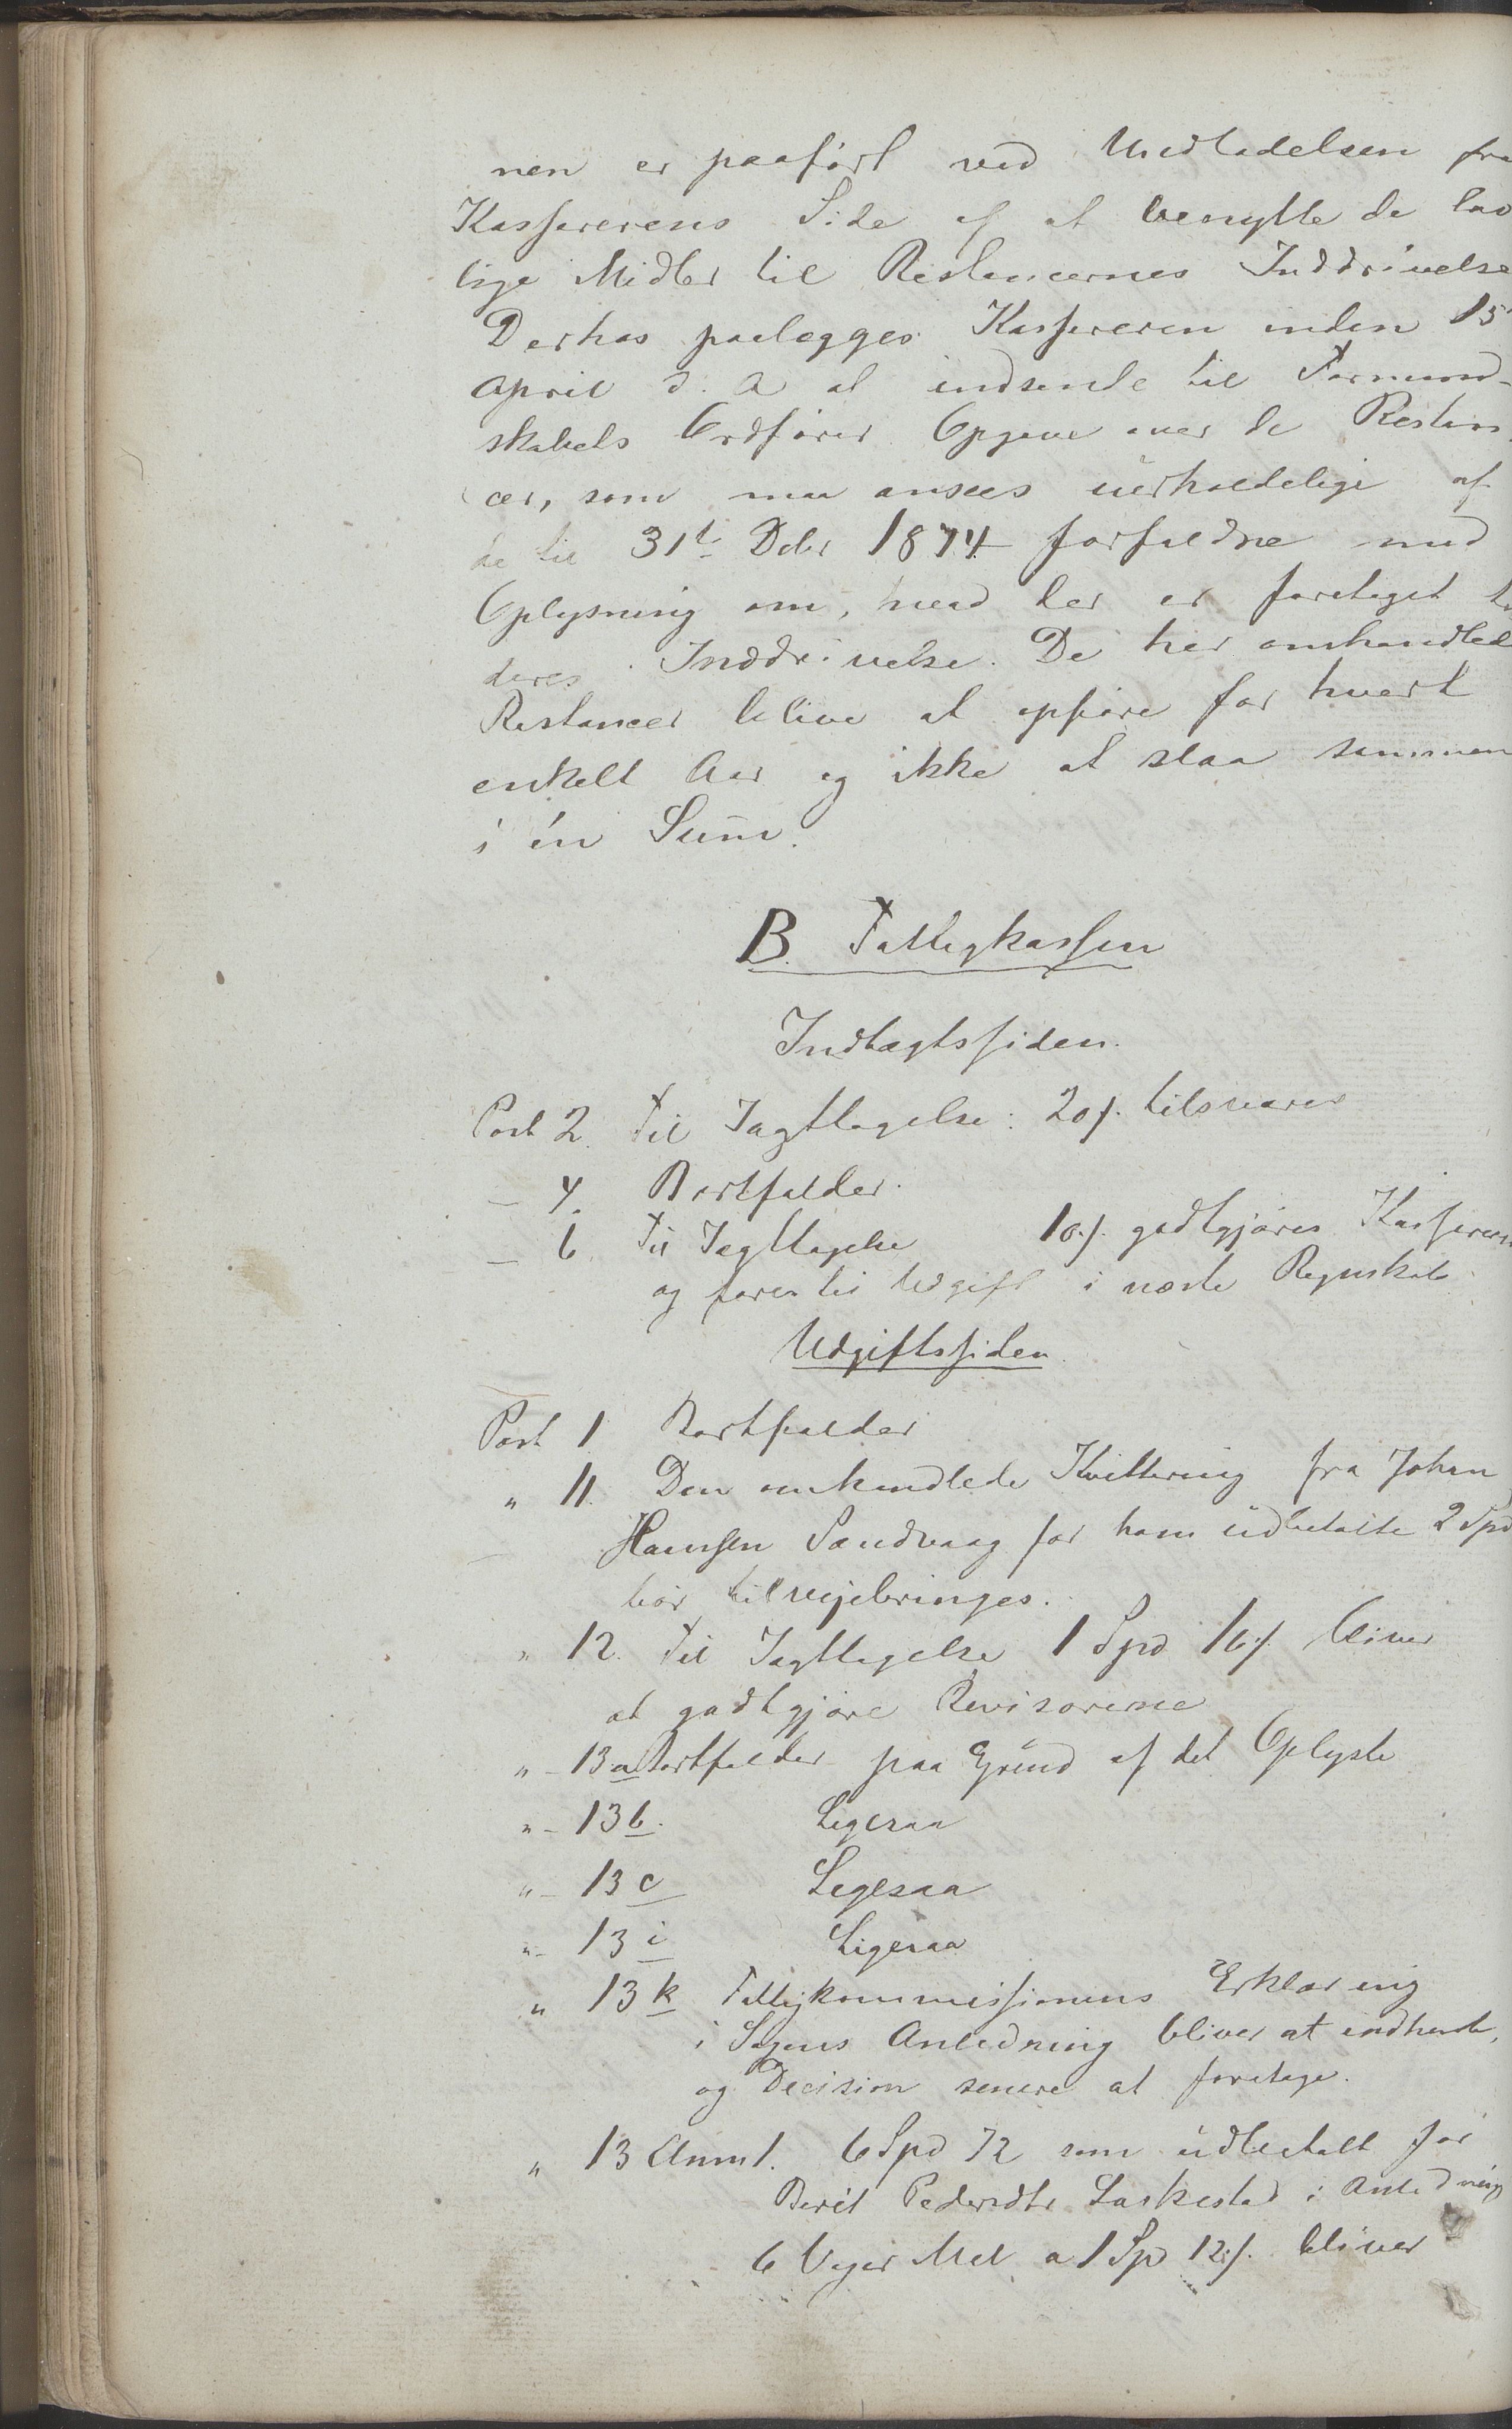 nen er paaført ved Undladelsen fra
Kassererens Side af at benytte de lov
lige Midler til Restancernes Inddrivelse
Derhos paalægges Kassereren inden 15
April d. A at indsende til Formand-
skabets Ordfører Opgave over de Restan
cer, som maa ansees uerholdelige af
de til 31te Debr 1874 forfaldne med
Oplysning om, hvad der er foretaget til
deres Inddrivelse. De her omhandlede
Restancer blive at opføre for hvert
enkelt Aar og ikke at slaa sammen
i én Sum.
B. Fattigkassen
Indtægtssiden.
Post 2. Til Iagttagelse: 20 s. tilsvares
— 4. Bortfalder.
— 6 Til Iagttagelse 10 s. godtgjøres Kassereren
og føres til Udgift i næste Regnskab
Udgiftssiden
Post 1 Bortfalder
" 11. Den omhandlede Kvittering fra Johan
Hansen Sandvaag for ham udbetalte 2 Spd
bør tilvejebringes.
" 12. Til Iagttagelse 1 Spd 16 s. bliver
at godtgjøre Revisorerne
" - 13 a Bortfalder paa Grund af det Oplyste
" - 13 b. Ligesaa
" - 13 c Ligesaa
" - 13 i Ligesaa
" 13 k Fattigkommissionens Erklæring
i Sagens Anledning bliver at indhente,
og Decision senere at foretage.
" 13 Anm 1. 6 Spd 72 som udbetalt for
Berit Pedersdtr Laskestad i Anledning
6 Voger Mel a 1 Spd 12 s. bliver